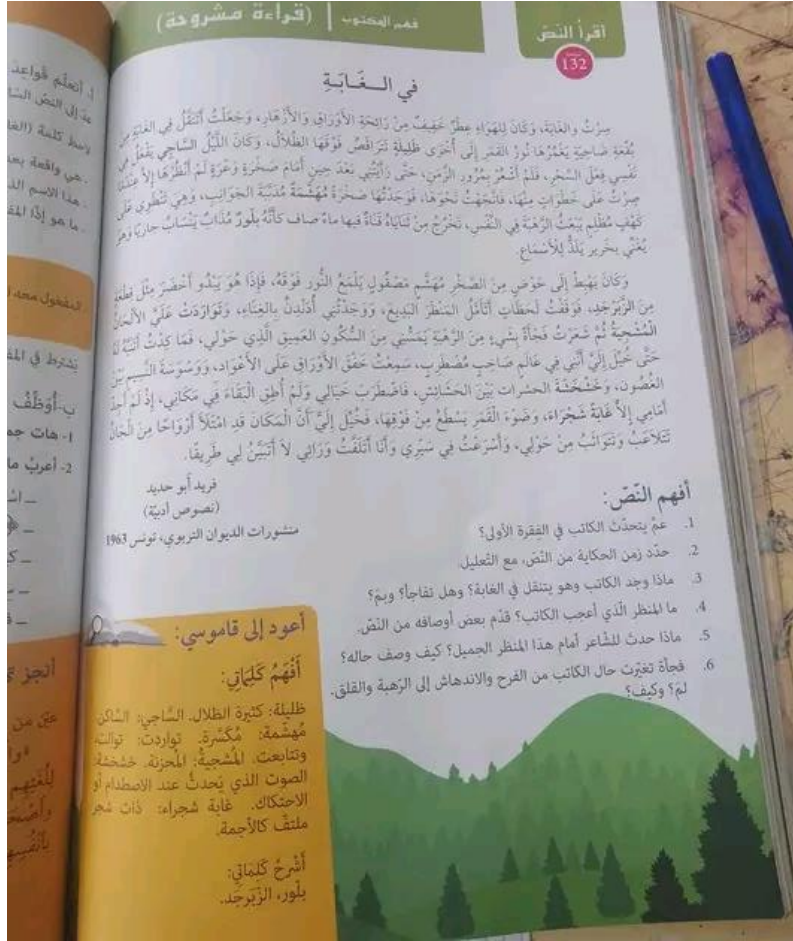 فهم المكتوب | (قراءة مشروحة)
أقرأ النص
132
في الــغَــابَةِ
سِرْتُ والغَابَةَ، وَكَانَ لِلهَوَاءِ عِطْرٌ خَفِيفٌ مِنْ رَائِحَةِ الأَوْرَاقِ وَالأَزْهَارِ، وَجَعَلْتُ أَتَنَقَّلُ فِي الغَابَةِ مِنْ
بُقْعَةٍ ضَاحِيَةٍ يَغْمُرُهَا نُورُ القَمَرِ إِلَى أُخْرَى ظَلِيلَةٍ تَتَرَاقَصُ فَوْقَهَا الظِّلَالُ، وَكَانَ اللَّيْلُ السَّاجِي يَفْعَلُ فِي
نَفْسِي فِعْلَ السِّحْرِ، فَلَمْ أَشْعُرْ بِمُرُورِ الزَّمَنِ، حَتَّى رَأَيْتُنِي بَعْدَ حِينٍ أَمَامَ صَخْرَةٍ وَعْرَةٍ لَمْ أَنْظُرْهَا إِلاَّ عِنْدَمَا
صِرْتُ عَلَى خَطَوَاتٍ مِنْهَا، فَاتَّجَهْتُ نَحْوَهَا، فَوَجَدْتُهَا صَخْرَةً مُهَشَّمَةً مُدَبَّبَةَ الجَوَانِبِ، وَهِيَ تَنْطَوِي عَلَى
كَهْفٍ مُظْلِمٍ يَبْعَثُ الرَّهْبَةَ فِي النَّفْسِ، تَخْرُجُ مِنْ ثَنَايَاهُ قَنَاةٌ فيها ماءٌ صاف كَأَنَّهُ بِلَّورٌ مُذَابٌ يَنْسَابُ جَارِيًا وَهُوَ
يُغَنِّي بِخَرِيرٍ يَلَذُّ لِلأَسْمَاعِ.
وَكَانَ يَهْبِطُ إِلَى حَوْضٍ مِنَ الصَّخْرِ مُهَشَّمٍ مَصْقُولٍ يَلْمَعُ النُّور فَوْقَهُ، فَإِذَا هُوَ يَبْدُو أَخْضَرَ مِثْلَ قِطْعَةٍ
مِنَ الزَّبَرْجَدِ، فَوَقَفْتُ لَحَظَاتٍ أَتَأَمَّلُ المَنْظَرَ البَدِيعَ، وَوَجَدْتُنِي أُدَنْدِنُ بِالغِنَاءِ، وَتَوَارَدَتْ عَلَيَّ الأَلْحَانُ
الْمُشْجِيَةُ ثُمَّ شَعَرْتُ فَجْأَةً بِشَيْءٍ مِنَ الرَّهْبَةِ يَمَسُّنِي مِنَ السُّكُونِ العَمِيقِ الَّذِي حَوْلِي، فَمَا كِدْتُ أَنْتَبِهُ لَهُ
حَتَّى خُيِّلَ إِلَيَّ أَنَّنِي فِي عَالَمٍ صَاخِبٍ مُضْطَرِبٍ، سَمِعْتُ خَفْقَ الأَوْرَاقِ عَلَى الأَعْوَادِ، وَوَسْوَسَةَ النَّسِيمِ بَيْنَ
الغُصُونِ، وَخَشْخَشَةَ الحشرات بَيْنَ الحَشَائِشِ، فَاضْطَرَبَ خَيَالِي وَلَمْ أُطِقِ الْبَقَاءَ فِي مَكَانِي، إِذْ لَمْ أَجِدْ
أَمَامِي إِلاَّ غَابَةً شَجْرَاءَ، وَضَوْءَ الْقَمَرِ يَسْطَعُ مِنْ فَوْقِهَا، فَخُيِّلَ إِلَيَّ أَنَّ الْمَكَانَ قَدِ امْتَلَأَ أَرْوَاحًا مِنَ الْجَانِّ
تَتَلَاعَبُ وَتَتَوَاثَبُ مِنْ حَوْلِي، وَأَسْرَعْتُ فِي سَيْرِي وَأَنَا أَتَلَفَّتُ وَرَائِي لاَ أَتَبَيَّنُ لِي طَرِيقًا.
فريد أبو حديد
(نصوص أدبيّة)
منشورات الديوان التربوي، تونس 1963
أفهم النّصّ:
1. عمّ يتحدّث الكاتب في الفقرة الأولى؟
2. حدّد زمن الحكاية من النّصّ، مع التّعليل.
3. ماذا وجد الكاتب وهو يتنقل في الغابة؟ وهل تفاجأ؟ وبمَ؟
4. ما المنظر الّذي أعجب الكاتب؟ قدّم بعض أوصافه من النّصّ.
5. ماذا حدث للشّاعر أمام هذا المنظر الجميل؟ كيف وصف حاله؟
6. فجأة تغيّرت حال الكاتب من الفرح والاندهاش إلى الرّهبة والقلق.
لمَ؟ وكيف؟
أعود إلى قاموسي:
أَفْهَمُ كَلِمَاتِي:
ظليلة: كثيرة الظلال. السّاجي: السّاكن.
مُهشّمة: مُكَسَّرة. تواردت: توالت
وتتابعت. المُشجيةُ: المُحزنة. خشخشة:
الصوت الذي يَحدثُ عند الاصطدام أو
الاحتكاك. غابة شجراء: ذات شجر
ملتفّ كالأجمة.
أَشْرَحُ كَلِمَاتِي:
بلّور، الزّبَرجَد.
أ. أتعلّم قواعد
عد إلى النصّ
لاحظ كلمة
هي واقعة بعد
هذا الاسم
ما هو إذًا
المفعول معه
يشترط في
ب-أُوَظِّفُ
1- هات
2- أعربْ ما
أنجز
عيّن من